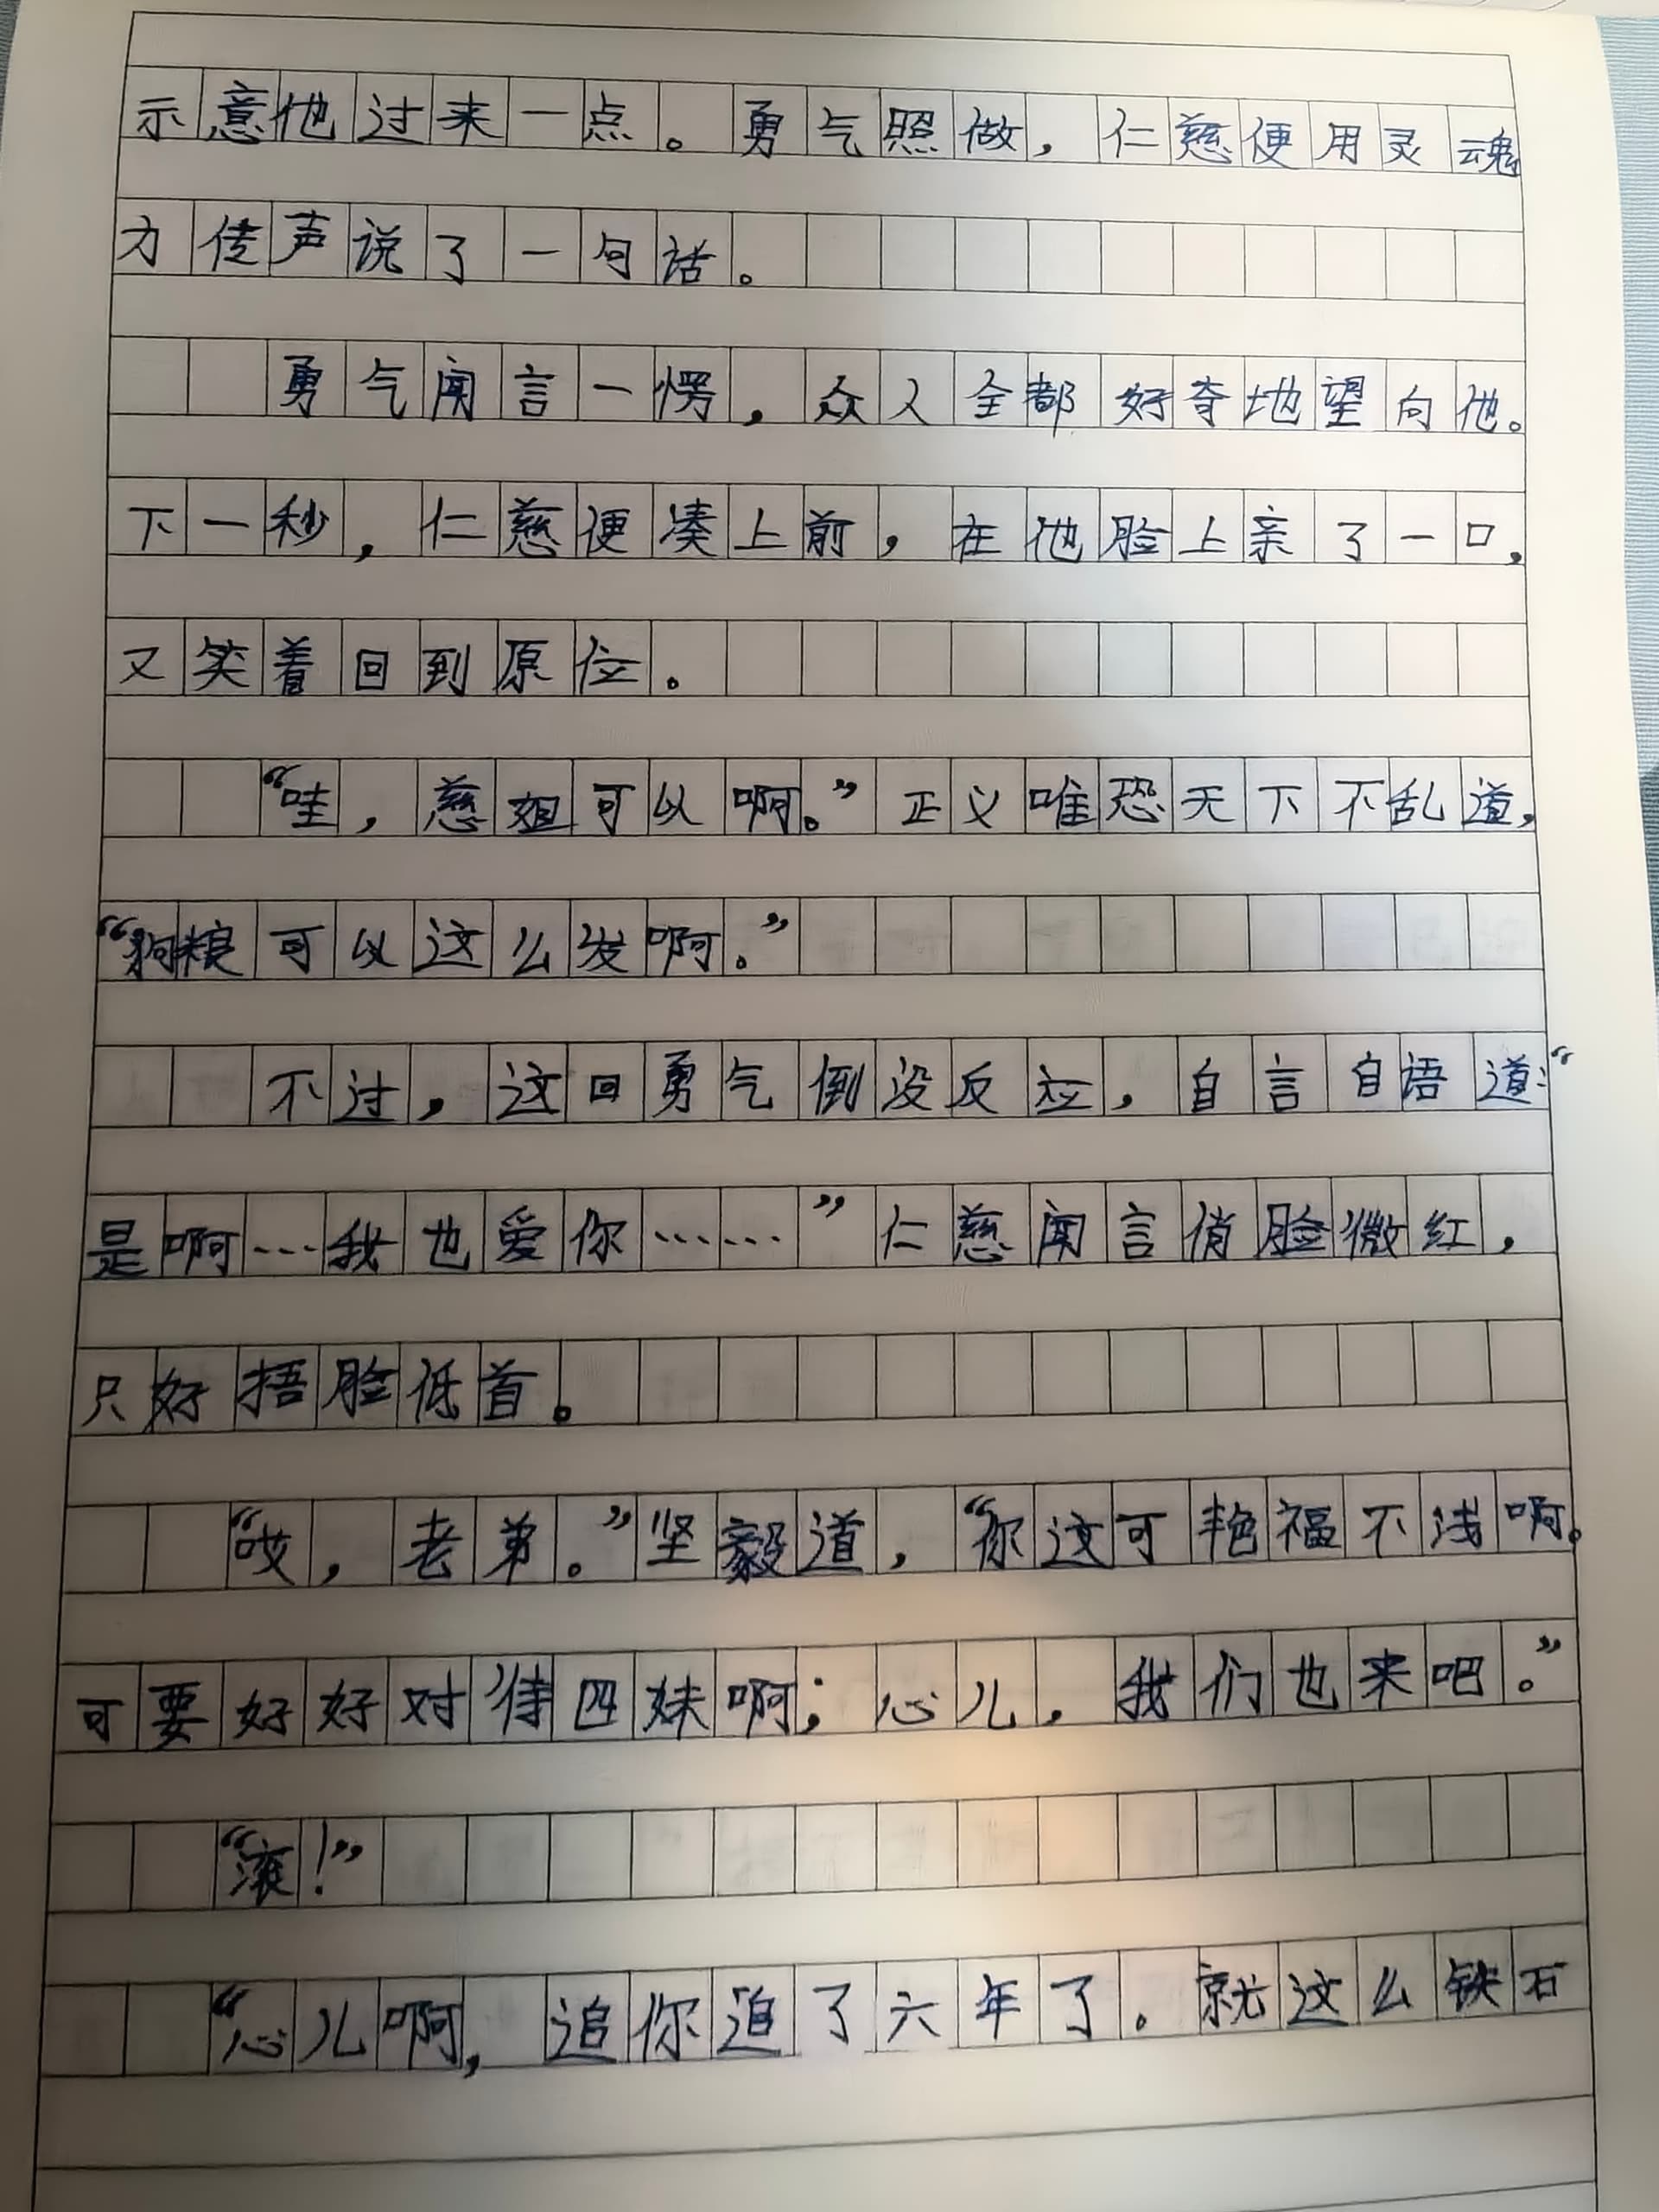 示意他过来一点。勇气照做，仁慈便用灵魂
力传声说了一句话。
勇气闻言一愣，众人全都好奇地望向他。
下一秒，仁慈便凑上前，在他脸上亲了一口，
又笑着回到原位。
“哇，慈姐可以啊。”正义唯恐天下不乱道，
“狗粮可以这么发啊。”
不过，这回勇气倒没反应，自言自语道：“
是啊…我也爱你……”仁慈闻言俏脸微红，
只好捂脸低首。
“哎，老弟。”坚毅道，“你这可艳福不浅啊。
可要好好对待四妹啊；心儿，我们也来吧。”
“滚！”
“心儿啊，追你追了六年了。就这么铁石